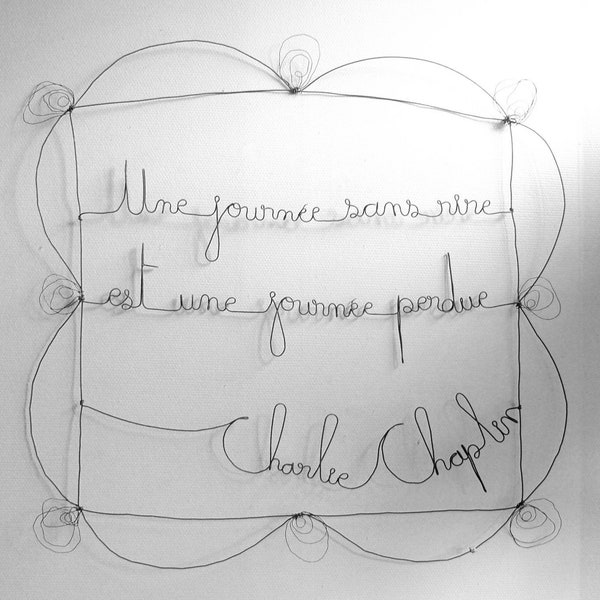 Une journée sans rire
est une journée perdue
Charlie Chaplin